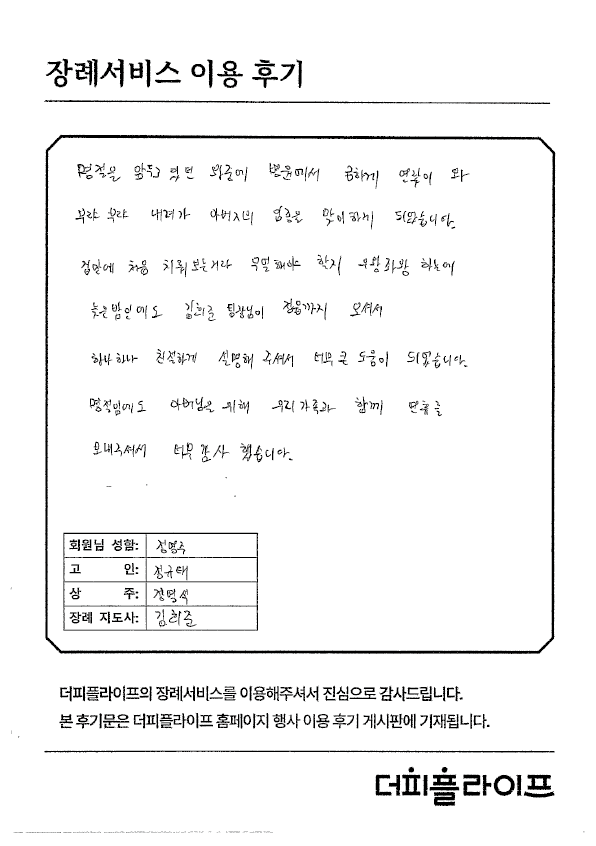 장례서비스 이용 후기
명절을 앞두고 있던 와중에 병원에서 급하게 연락이 와
부랴 부랴 내려가 아버지의 임종을 맞이하게 되었습니다.
겁만에 처음 치뤄보는거라 무얼해야 할지 우왕좌왕 하는데
늦은밤인데도 김희준 팀장님이 정읍까지 오셔서
하나하나 친절하게 설명해 주셔서 너무 큰 도움이 되었습니다.
명절임에도 아버님을 위해 우리가족과 함께 연휴를
보내주셔서 너무 감사 했습니다.
회원님 성함: 정명주
고 인: 정규태
상 주: 정명석
장례 지도사: 김희준
더피플라이프의 장례서비스를 이용해주셔서 진심으로 감사드립니다.
본 후기문은 더피플라이프 홈페이지 행사 이용 후기 게시판에 기재됩니다.
더피플라이프